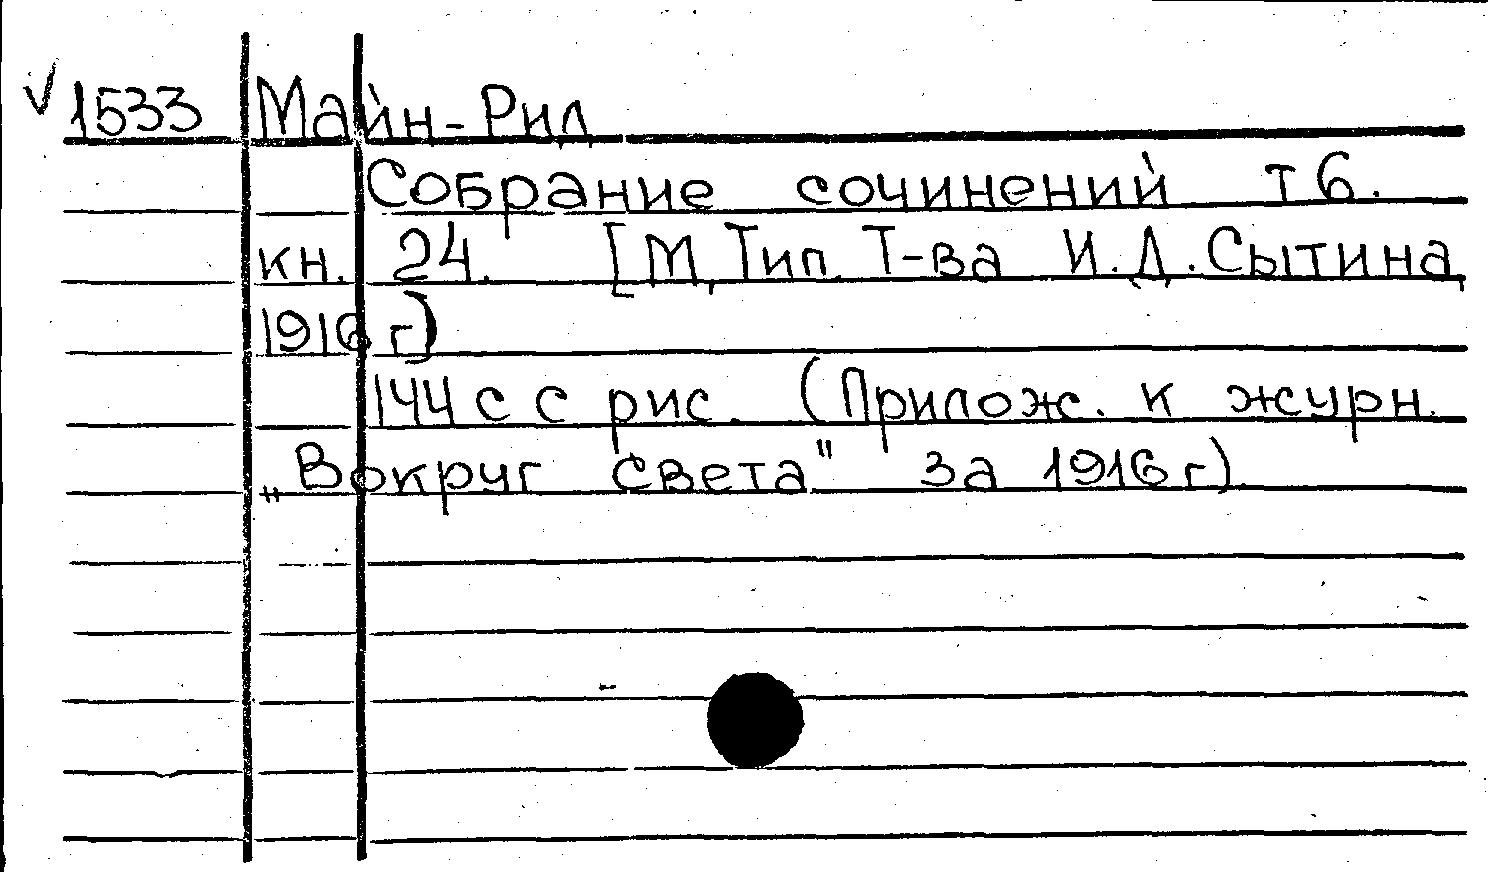 √ 1533 Майн-Рид
Собрание сочинений т 6.
кн. 24. [М, Тип. Т-ва И.Д. Сытина,
1916 г)
144 с с рис. (Прилож. к журн.
„Вокруг света" за 1916 г).